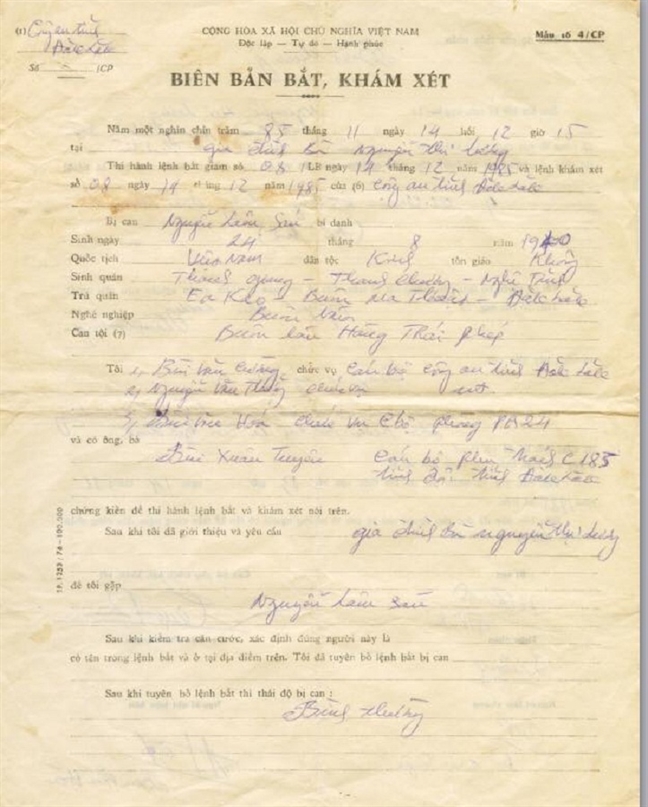 (1) Công an tỉnh
CỘNG HÒA XÃ HỘI CHỦ NGHĨA VIỆT NAM
Mẫu số 4/CP
Đắc Lắc
Độc lập — Tự do — Hạnh phúc
Số /CP
BIÊN BẢN BẮT, KHÁM XÉT
Năm một nghìn chín trăm 85 tháng 11 ngày 14 hồi 12 giờ 15
tại gia đình Bà Nguyễn Thị
Thi hành lệnh bắt giam số 08 /LB ngày 14 tháng 12 năm 1985 và lệnh khám xét
số 08 ngày 14 tháng 12 năm 1985 của (6) Công an tỉnh Đắc Lắc
Bị can Nguyễn Lâm Sáu bí danh
Sinh ngày 24 tháng 8 năm 1940
Quốc tịch Việt Nam dân tộc Kinh tôn giáo Không
Sinh quán Thanh - Thanh Chương - Nghệ Tĩnh
Trú quán Ea Kao - Buôn Ma Thuột - Đắc Lắc
Nghề nghiệp Buôn bán
Can tội (7) Buôn bán Hàng Trái phép
Tôi 1, Bùi Văn Cường chức vụ Cán bộ công an tỉnh Đắc Lắc
2, Nguyễn Văn chức vụ nt
3, Văn Hoá chức vụ C.bộ phòng PA24
và có ông, bà
Bùi Xuân Cán bộ C185
tỉnh đội tỉnh Đắc Lắc
chứng kiến để thi hành lệnh bắt và khám xét nói trên.
Sau khi tôi đã giới thiệu và yêu cầu gia đình Bà Nguyễn Thị
để tôi gặp
Nguyễn Lâm Sáu
Sau khi kiểm tra căn cước, xác định đúng người này là
có tên trong lệnh bắt và ở tại địa điểm trên. Tôi đã tuyên bố lệnh bắt bị can
Sau khi tuyên bố lệnh bắt thì thái độ bị can :
Bình thường